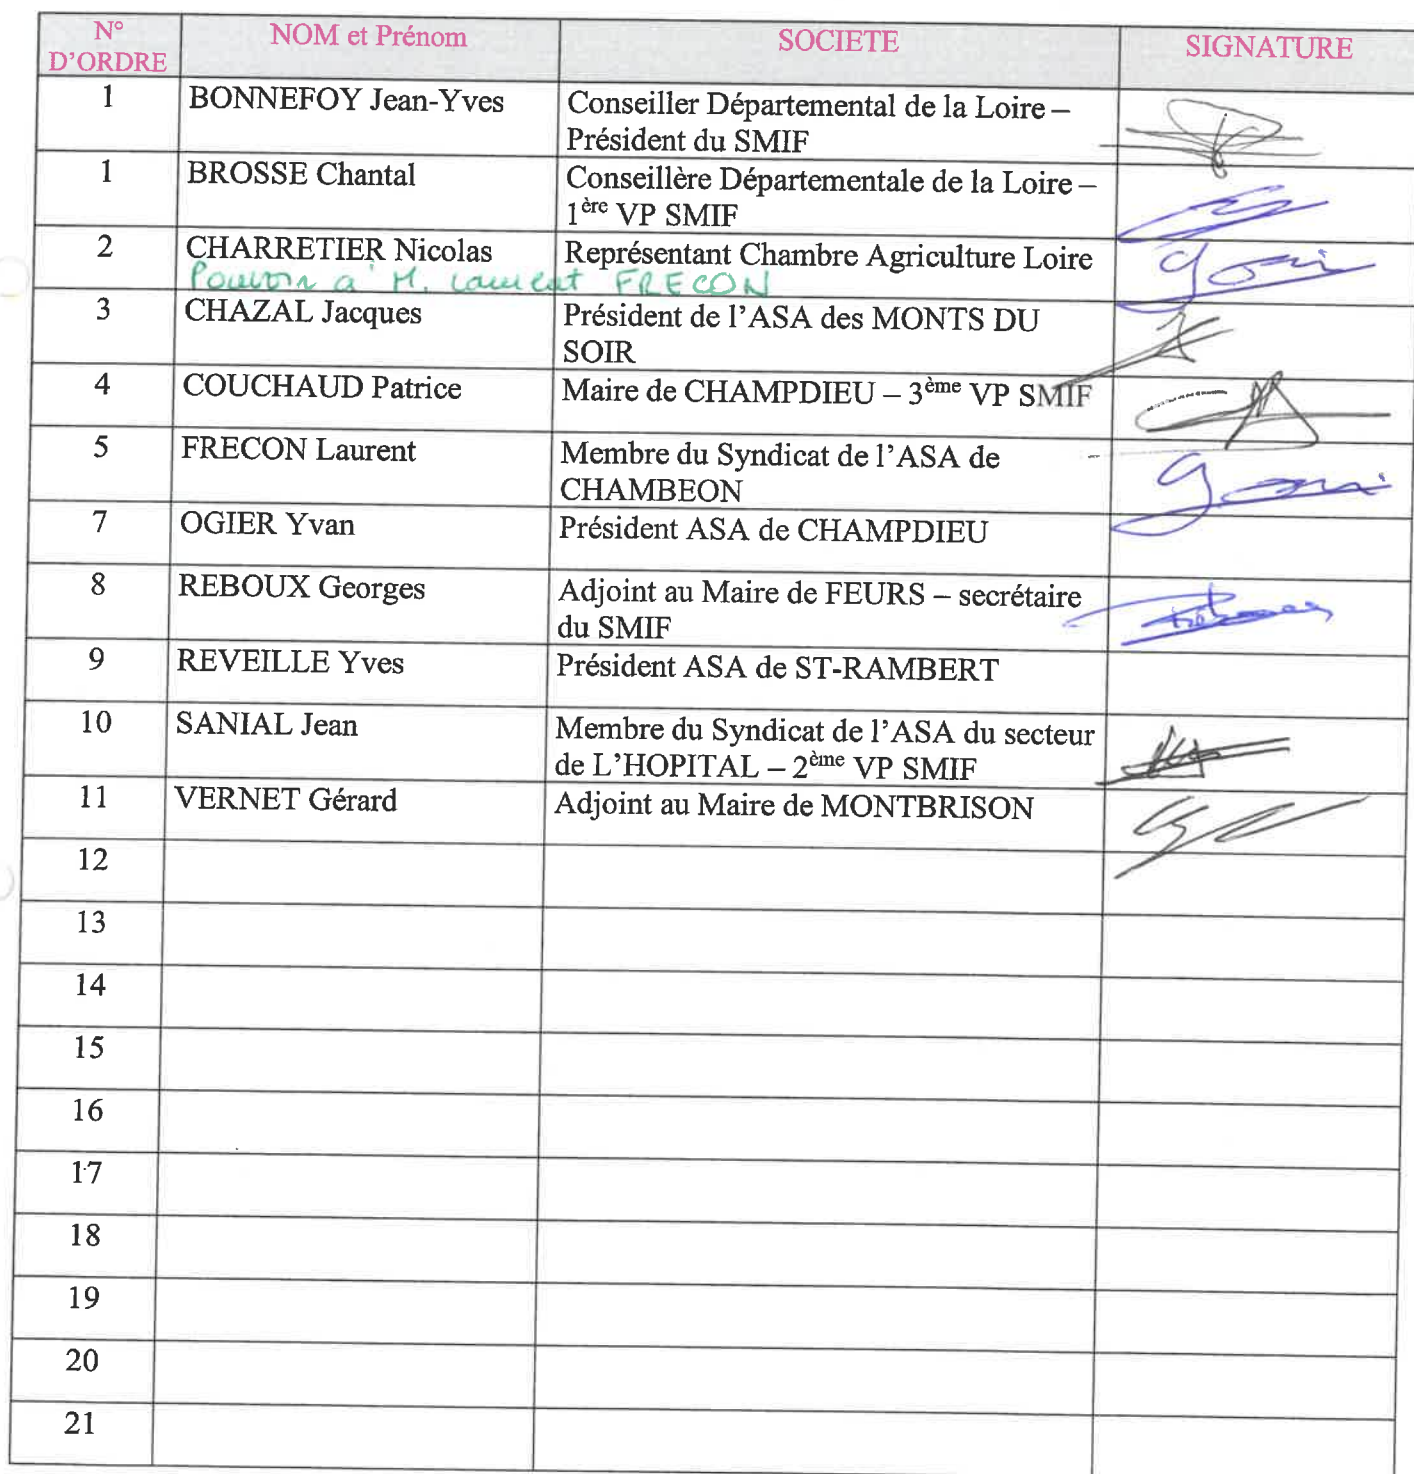 N° D'ORDRE NOM et Prénom SOCIETE SIGNATURE
1 BONNEFOY Jean-Yves Conseiller Départemental de la Loire –
Président du SMIF
1 BROSSE Chantal Conseillère Départementale de la Loire –
1ère VP SMIF
2 CHARRETIER Nicolas Représentant Chambre Agriculture Loire
Pouvoir à M. Laurent FRECON
3 CHAZAL Jacques Président de l'ASA des MONTS DU
SOIR
4 COUCHAUD Patrice Maire de CHAMPDIEU – 3ème VP SMIF
5 FRECON Laurent Membre du Syndicat de l'ASA de
CHAMBEON
7 OGIER Yvan Président ASA de CHAMPDIEU
8 REBOUX Georges Adjoint au Maire de FEURS – secrétaire
du SMIF
9 REVEILLE Yves Président ASA de ST-RAMBERT
10 SANIAL Jean Membre du Syndicat de l'ASA du secteur
de L'HOPITAL – 2ème VP SMIF
11 VERNET Gérard Adjoint au Maire de MONTBRISON
12
13
14
15
16
17
18
19
20
21